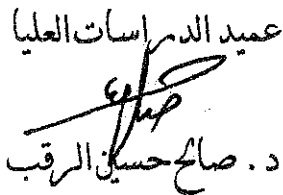 عميد الدراسات العليا
د. صالح حسين الرقب